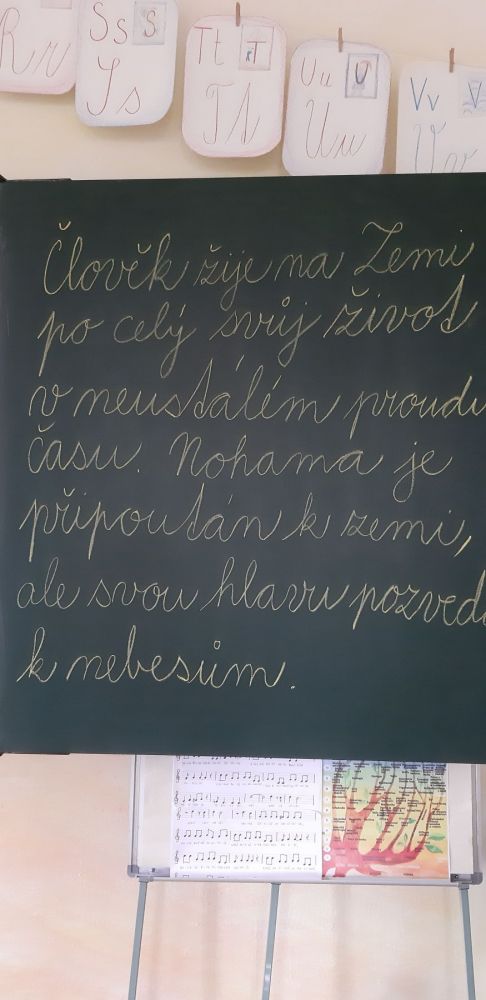 Rr
Ss S
Ss
Tt T
Tt
Uu U
Uu
Vv V
Vv
Člověk žije na Zemi
po celý svůj život
v neustálém proudu
času. Nohama je
připoután k zemi,
ale svou hlavu pozvedá
k nebesům.